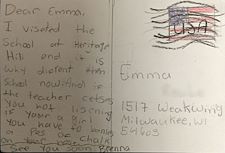 Dear Emma,
I visited the
School at Heritage
Hill and it is
why different then
School now! And if
the teacher cetses
you not listening
if your a Girl
You have to
a Pes of chalk
on
See you soon, Brenna
USA
Emma
1517 Weakwring
Milwaukee, WI
54603